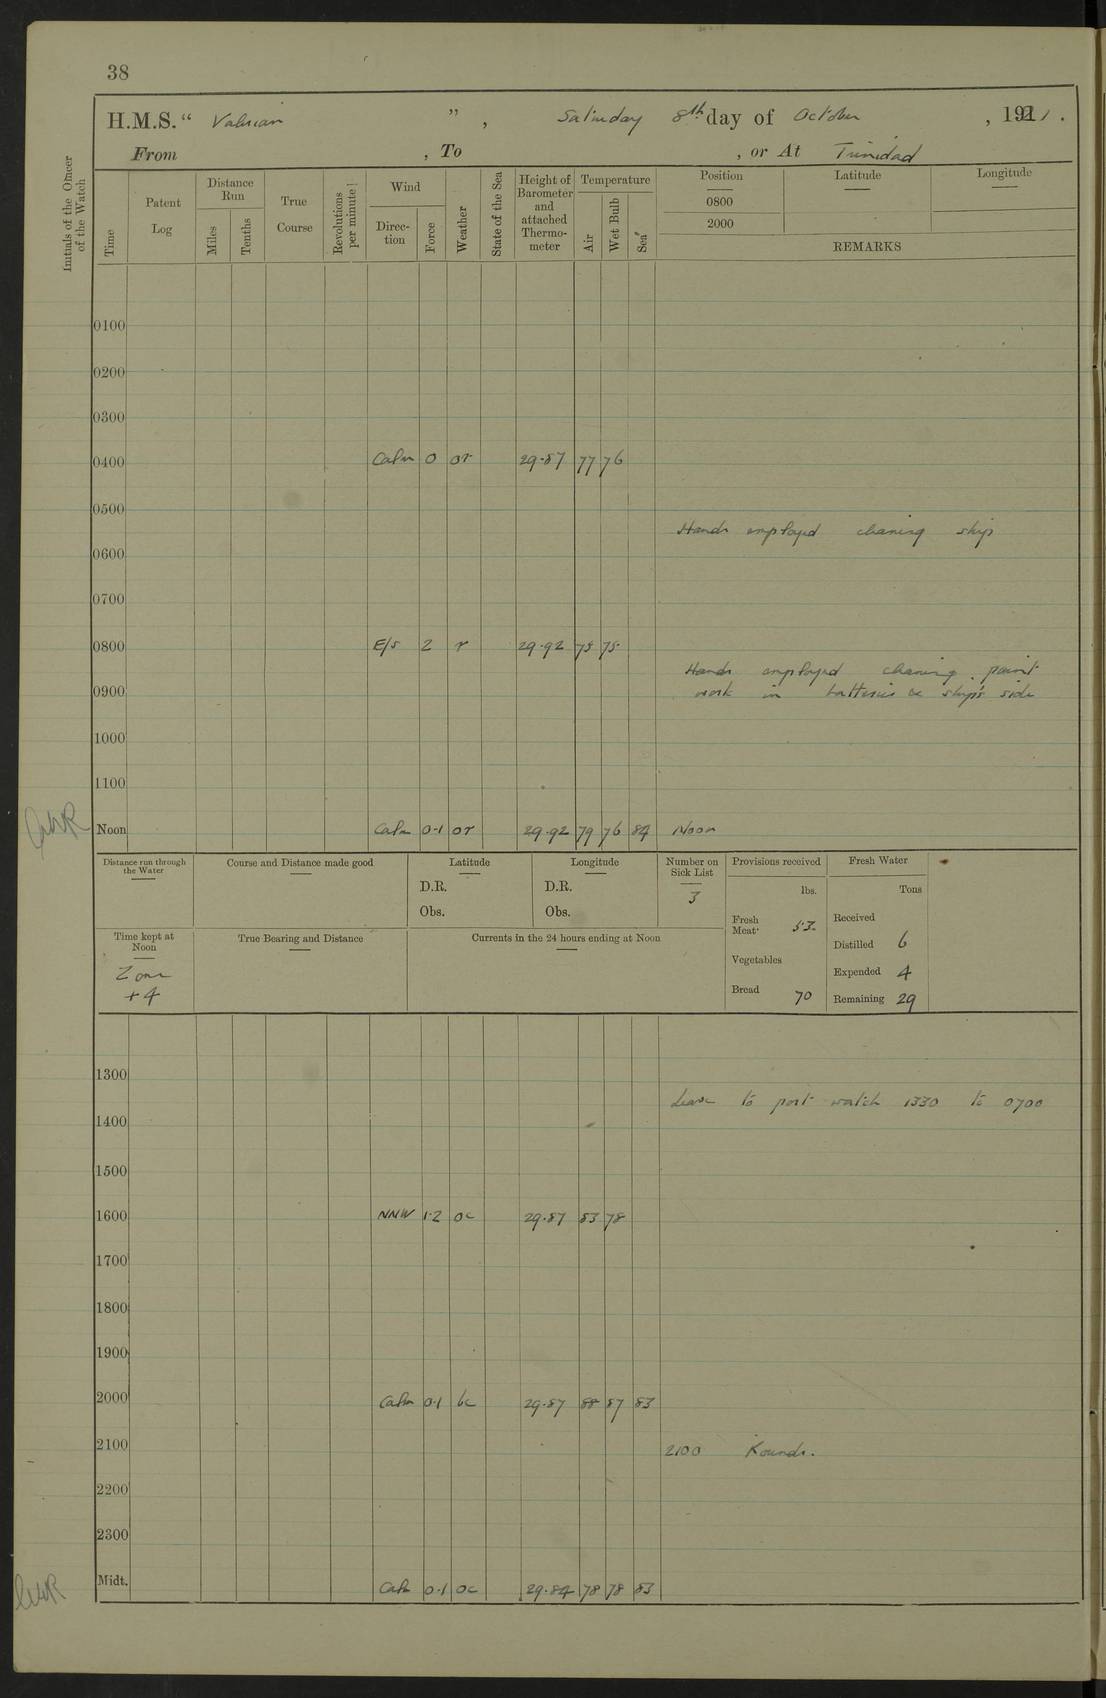 38
H.M.S. "Valerian", Saturday 8th day of October, 1921.
From , To , or At Trinidad
Initials of the Officer of the Watch
Time
Patent Log
Distance Run
Miles
Tenths
True Course
Revolutions per minute
Wind
Direction
Force
Weather
State of the Sea
Height of Barometer and attached Thermometer
Temperature
Air
Wet Bulb
Sea
Position
Latitude
Longitude
0800
2000
REMARKS
0100
0200
0300
0400 Calm 0 or 29.87 77 76
0500
Hands employed cleaning ship
0600
0700
0800 E/S 2 r 29.92 75
Hands employed cleaning paint
0900 work in batteries & ship's side
1000
1100
Noon Calm 0.1 or 29.92 79 76 84 Noon
Distance run through the Water
Course and Distance made good
Latitude
D.R.
Obs.
Longitude
D.R.
Obs.
Number on Sick List
3
Provisions received
lbs.
Fresh Meat 53
Vegetables
Bread 70
Fresh Water
Tons
Received
Distilled 6
Expended 4
Remaining 29
Time kept at Noon
Zone
+4
True Bearing and Distance
Currents in the 24 hours ending at Noon
1300
Leave to port watch 1330 to 0700
1400
1500
1600 NNW 1.2 oc 29.87 83 78
1700
1800
1900
2000 Calm 0.1 bc 29.87 88 87 83
2100 2100 Rounds.
2200
2300
Midt. Calm 0.1 oc 29.84 78 78 83